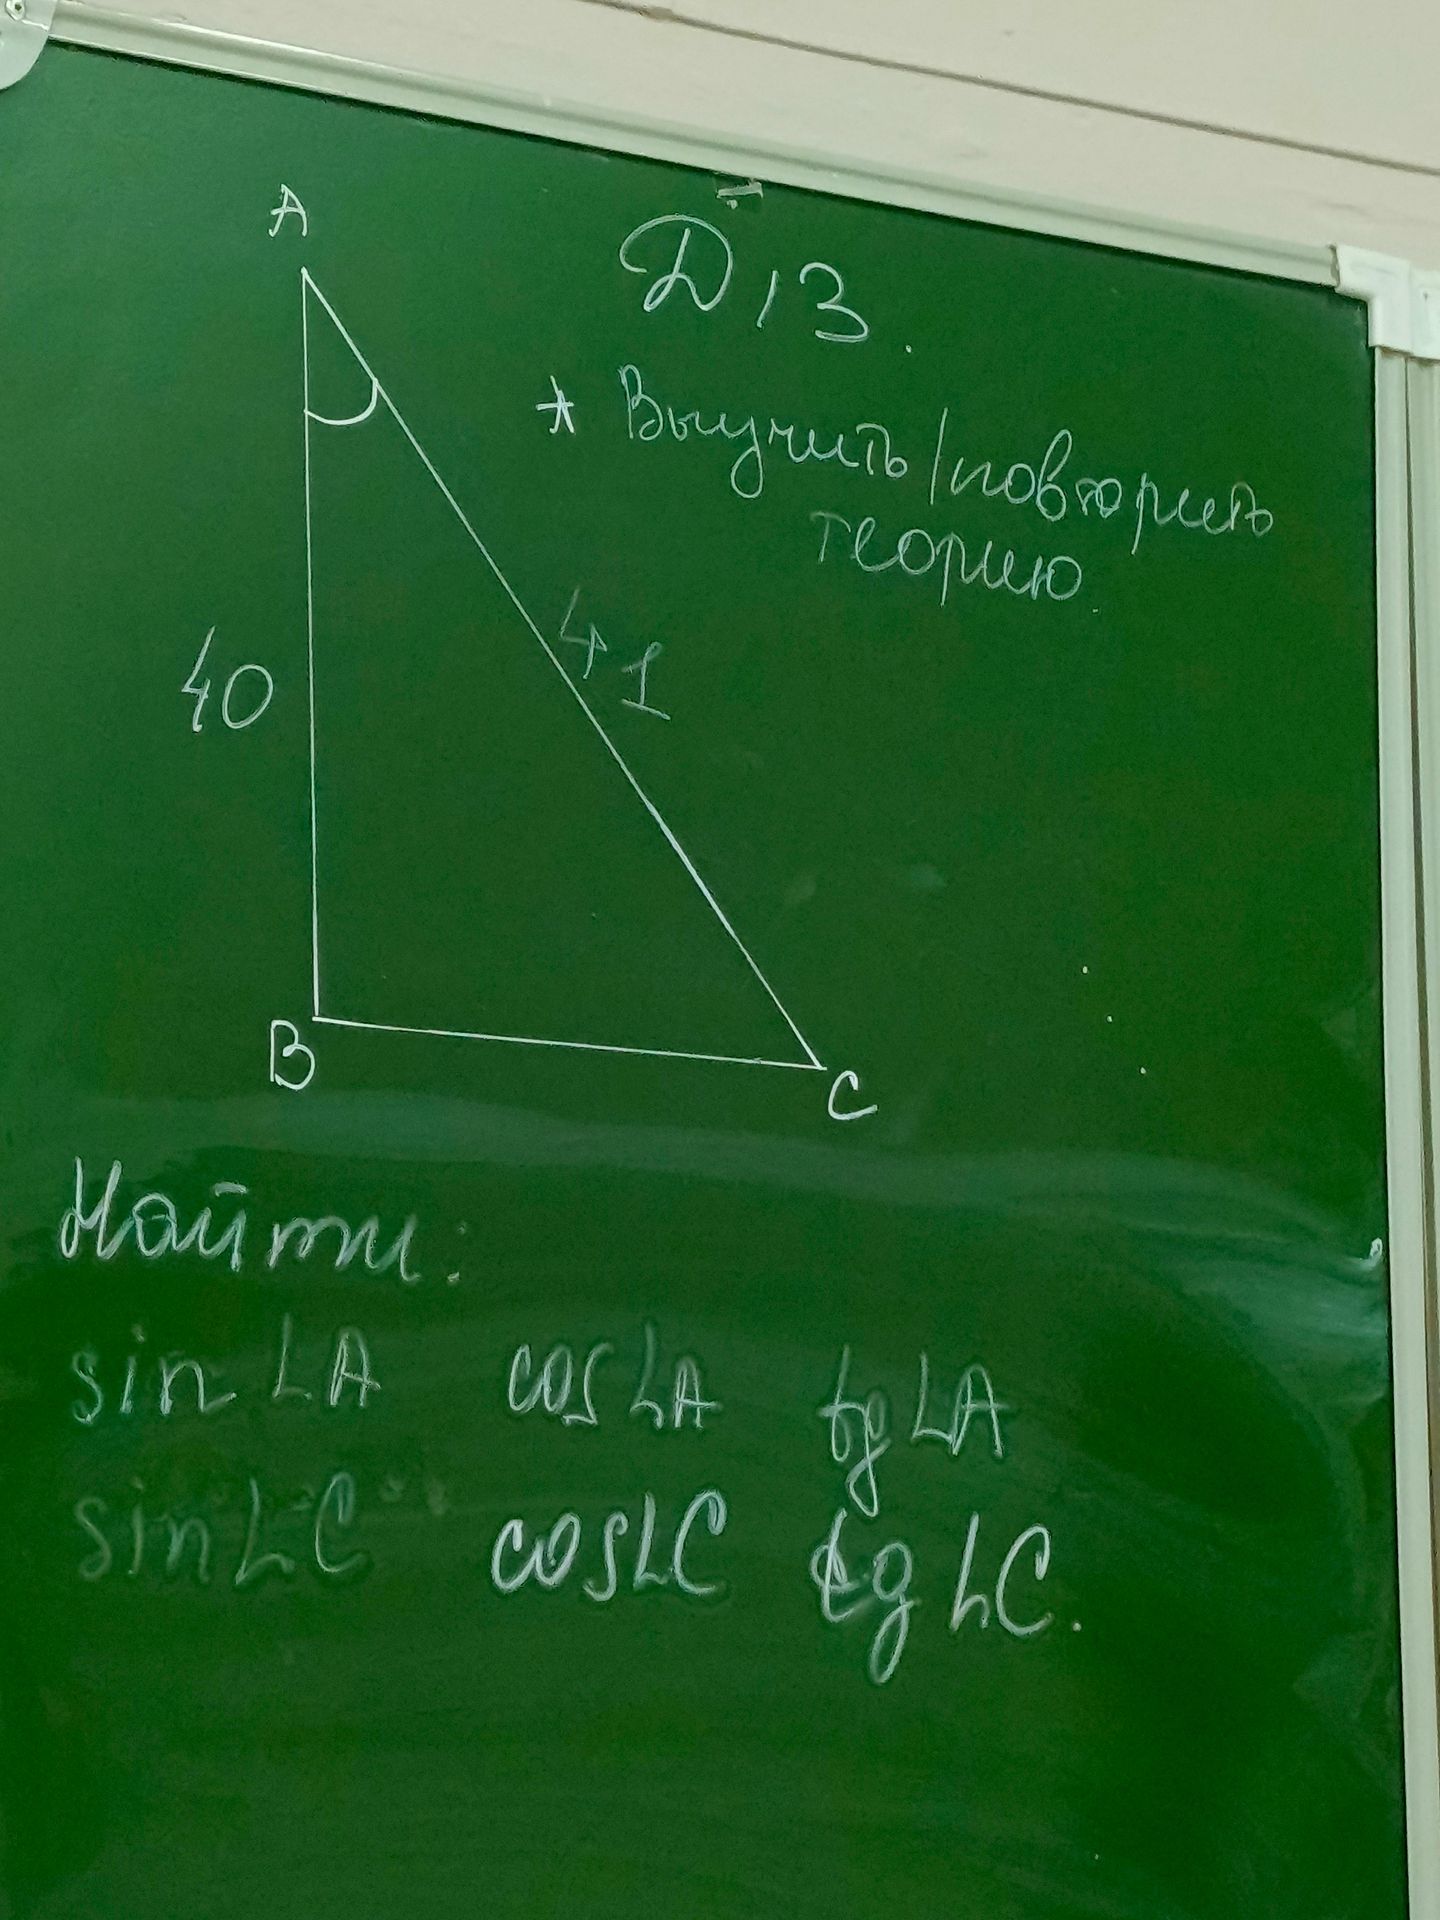 A
Д/З.
* Выучить/повторить
теорию.
40
41
B
C
Найти:
sin ∠A cos ∠A tg ∠A
sin ∠C cos ∠C tg ∠C.